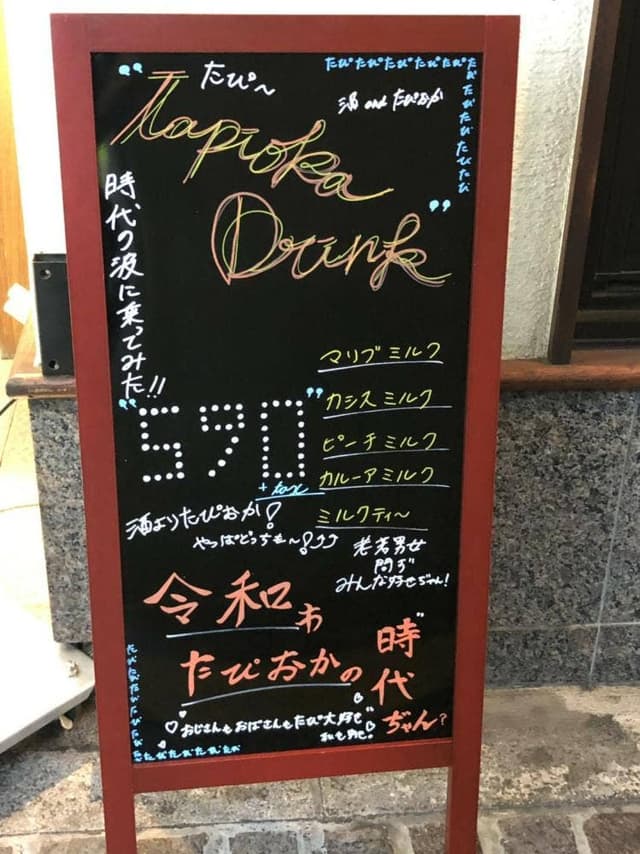 たぴ〜
たぴたぴたぴたぴたぴたぴ
たぴたぴたぴたぴ
酒 and たぴおか
“Tapioka
Drink”
時代の波に乗ってみた!!
マリブミルク
カシスミルク
ピーチミルク
カルーアミルク
ミルクティ〜
“590”
+ tax
酒よりたぴおか!
やっぱどっちも〜!
老若男女
問わず
みんな好きぢゃん!
令和わ
たぴおかの
時代
ぢゃん?
♡おじさんもおばさんもたぴ大好き♡
私も好き。
たぴたぴたぴたぴたぴ
たぴたぴたぴたぴたぴ